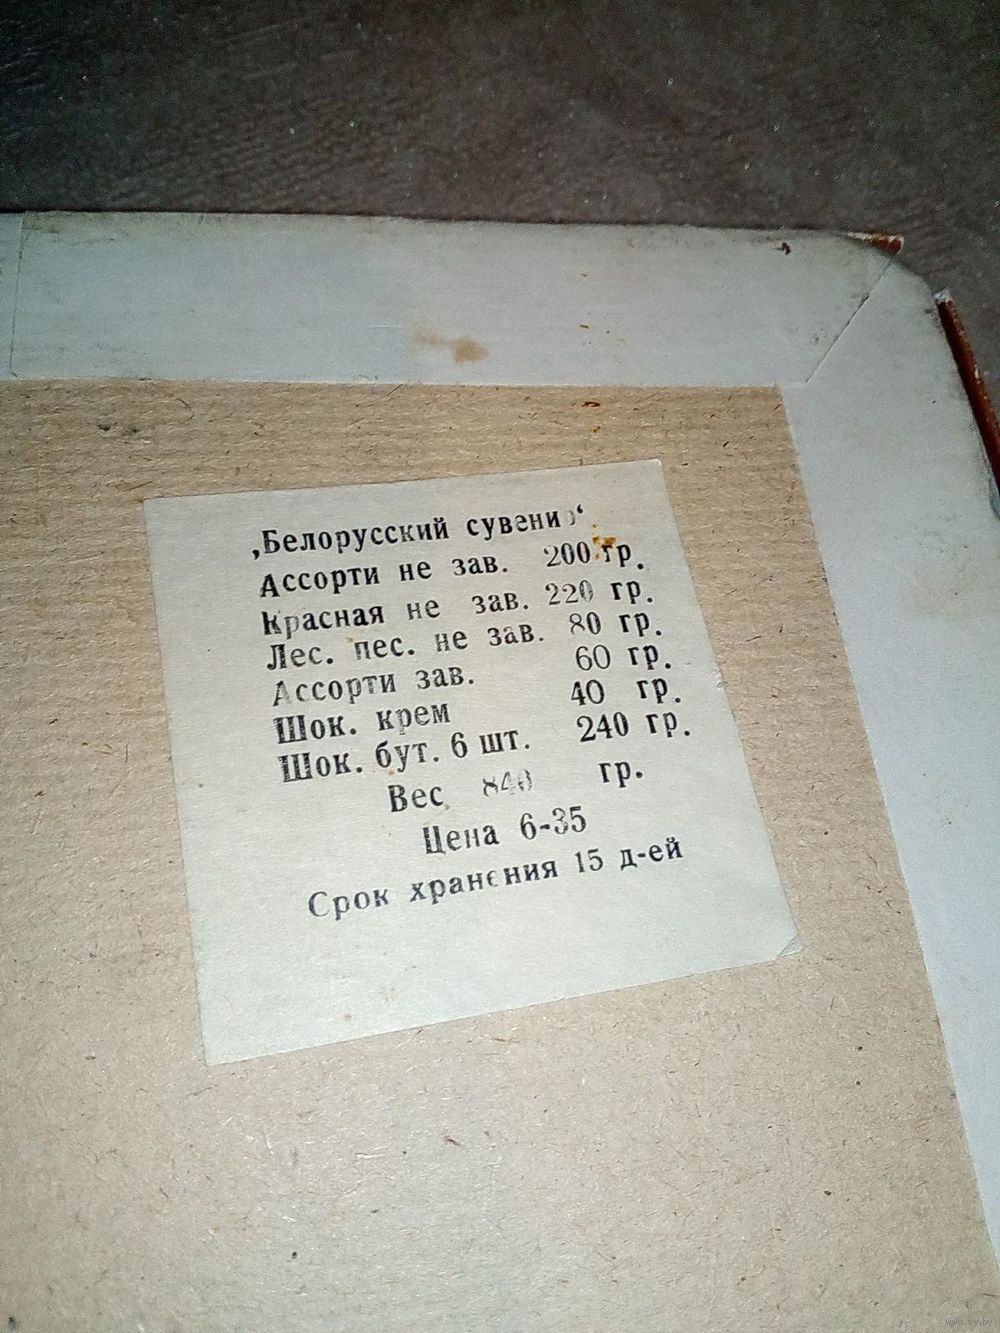 „Белорусский сувенир“
Ассорти не зав. 200 гр.
Красная не зав. 220 гр.
Лес. пес. не зав. 80 гр.
Ассорти зав. 60 гр.
Шок. крем 40 гр.
Шок. бут. 6 шт. 240 гр.
Вес 840 гр.
Цена 6-35
Срок хранения 15 д-ей
www.ay.by